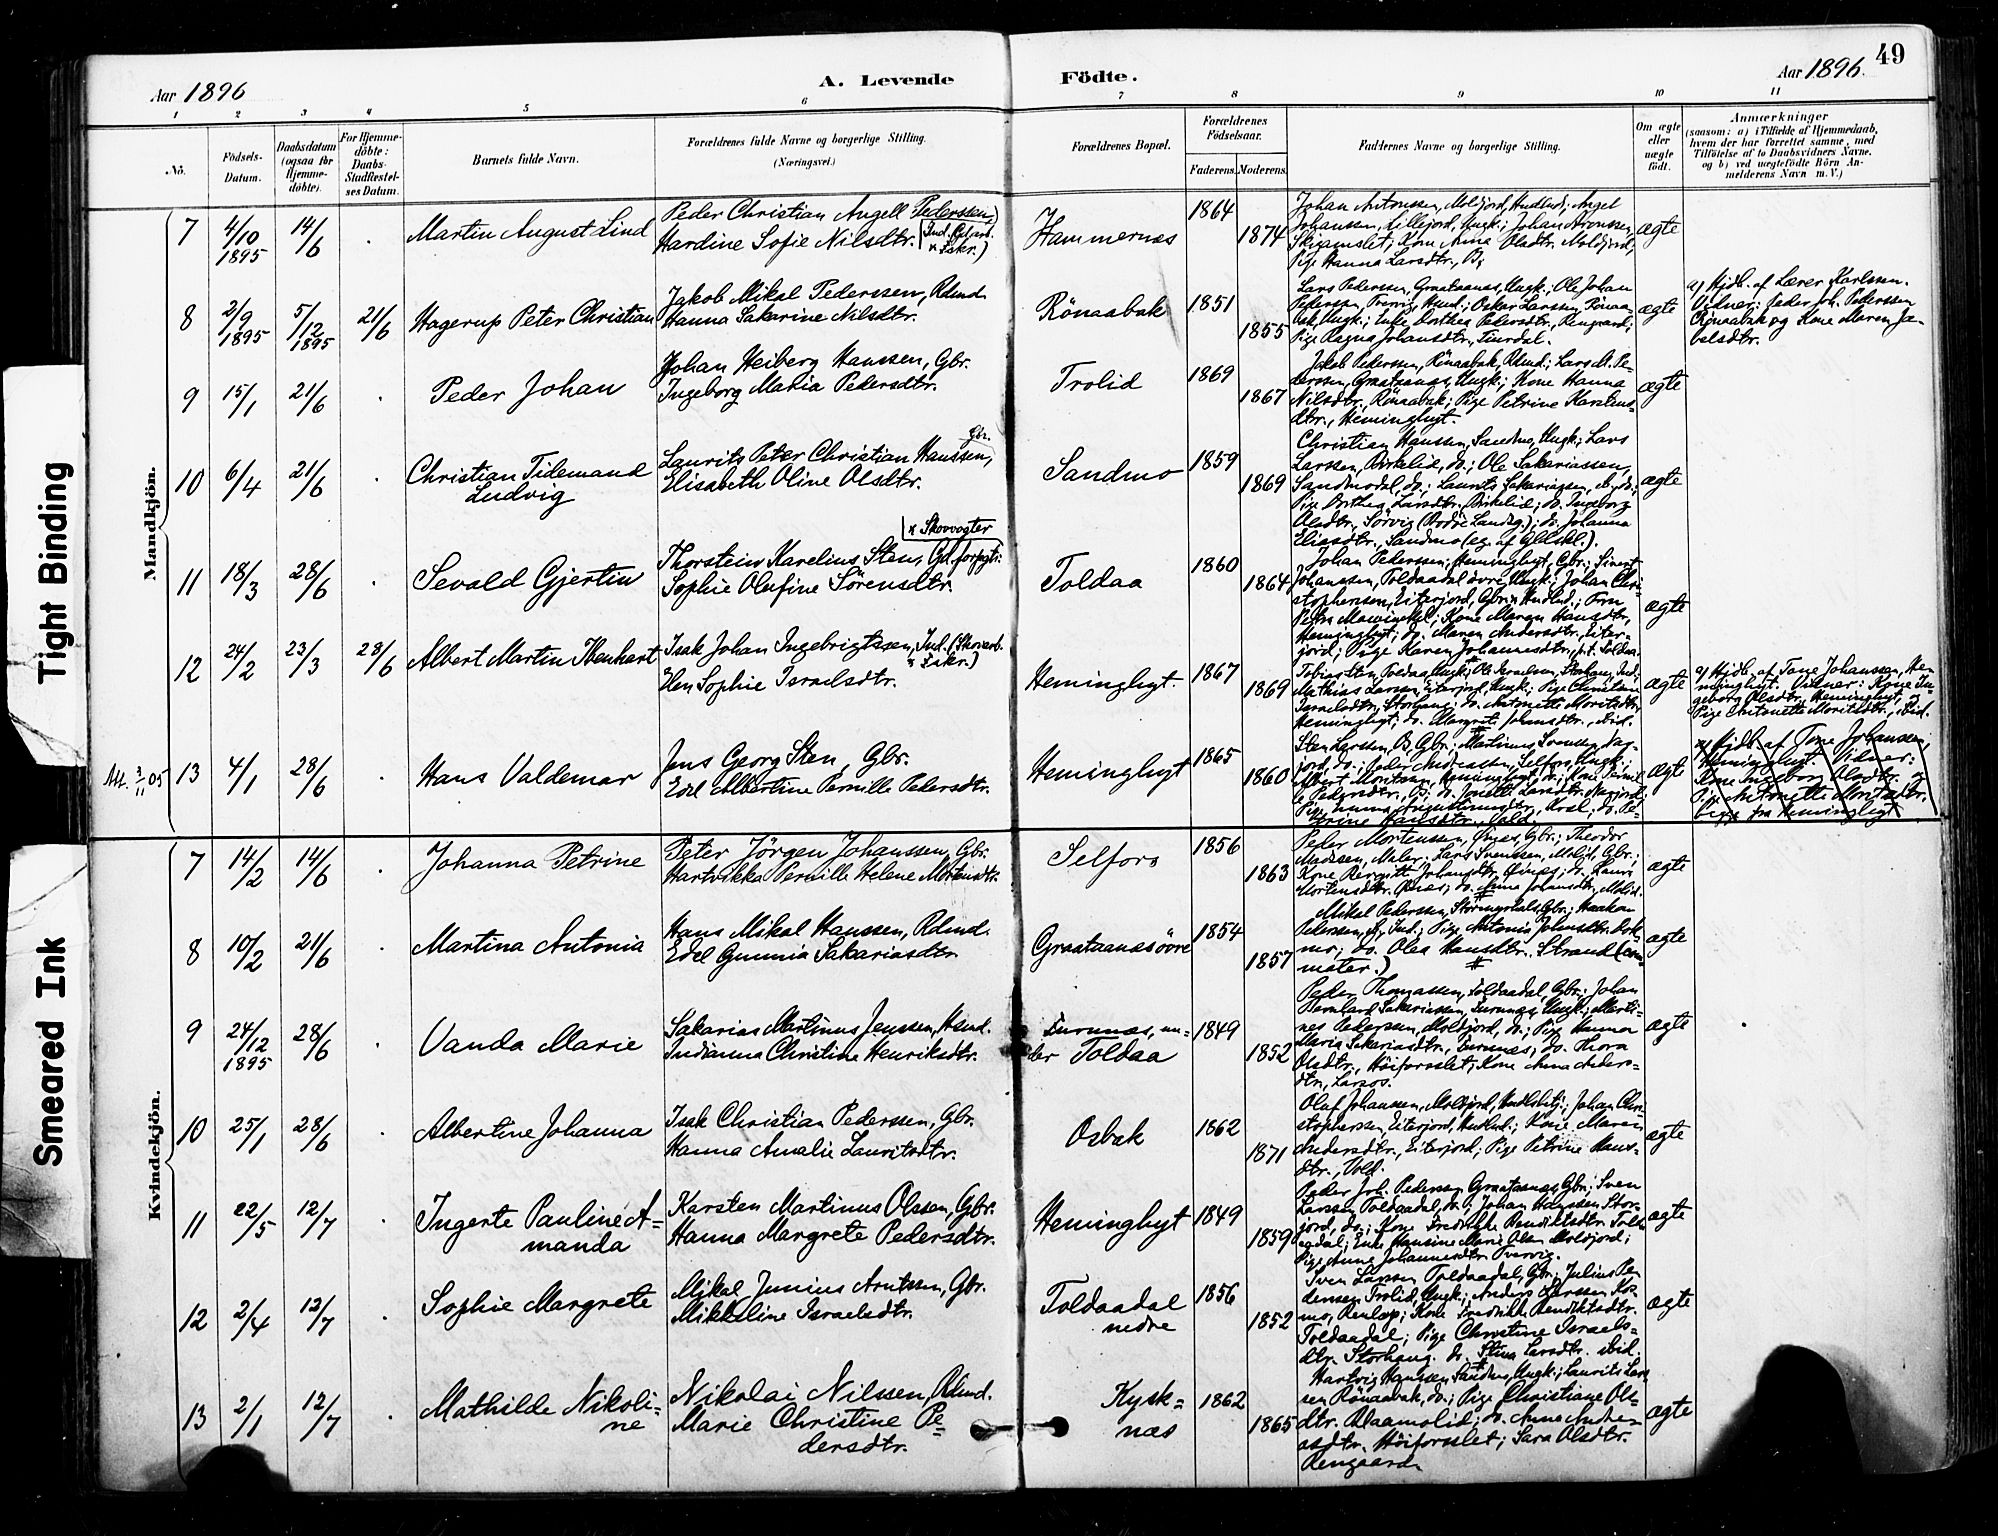 Tight Binding
Smeared Ink
49
Aar 1896
A. Levende Födte.
Aar 1896.
1 2 3 4 5 6 7 8 9 10 11
No.
Födsels-Datum.
Daabsdatum (ogsaa for Hjemme-döbte).
For Hjemme-döbte: Daabs-Stadfæstel-ses Datum.
Barnets fulde Navn.
Forældrenes fulde Navne og borgerlige Stilling.
(Næringsvei.)
Forældrenes Bopæl.
Forældrenes Födselsaar.
Faderens. Moderens.
Faddernes Navne og borgerlige Stilling.
Om ægte eller uægte födt.
Anmærkninger
(saasom: a) i Tilfælde af Hjemmedaab,
hvem der har forrettet samme, med
Tilföielse af to Daabsvidners Navne,
og b) ved uægtefödte Börn An-
melderens Navn m. V.)
Mandkjön.
7 4/10 1895 14/6 Martin August Lind
Peder Christian Angell Pederssen
Hardine Sofie Nilsdtr.
Hammernæs 1864 1874
Johan Antonssen, Moldjord, Husbesd; Angel
Johanssen, Lillejord, Ungk.; Johan Aronssen,
Skjamslet; Kone Anna Olsdtr. Moldjord;
Pige Hanna Larsdtr., B;
ægte
8 2/9 1895 5/12 1895 21/6 Hagerup Peter Christian
Jakob Mikal Pederssen, Rdmd.
Hanna Sakarine Nilsdtr.
Rönaabak 1851 1855
Lars Pederssen, Graataanæs, Ungk.; Ole Johan
Pederssen, Husmd.; Oskar Larssen, Rönaa-
bak, Ungk.; Enke Dorthea Pedersdtr., Rengaard;
Pige Ragna Johansdtr.,
ægte
a) Hjdb. af Lærer Karlssen.
Vidner: Peder Joh. Pederssen
Rönaabak og Kone Maren Ja-
kobsdtr.
9 15/1 21/6 Peder Johan
Johan Heiberg Hanssen, Gbr.
Ingeborg Maria Pedersdtr.
Trolid 1869 1867
Jakob Pederssen, Rönaabak, Rdmd.; Lars M. Pe-
derssen, Graataanæs, Ungk.; Kone Hanna
Nilsdtr., Rönaabak; Pige Petrine Karstens-
dtr., Heminghygt.
ægte
10 6/4 21/6 Christian Tidemand
Ludvig
Laurits Peter Christian Hanssen, Gbr.
Elisabeth Oline Olsdtr.
Sandmo 1859 1869
Christian Hanssen, Sandmo, Ungk.; Lars
Larssen, Birkelid, do.; Ole Sakariassen,
Sandmodal, do.; Laurits Sakariassen,
Pige Dorthea Larsdtr. Birkelid; do. Ingeborg
Olsdtr., Sörvig (Bodö Landsg.); do. Johanna
Eliasdtr., Sandmo
ægte
11 18/3 28/6 Sevald Gjertin
x Skovvogter
Thorstein Karelius Sten, Gd.forpgt.
Sophie Olufine Sörensdtr.
Toldaa 1860 1864
Johan Pederssen, Heminghygt, Gbr.; Sivert
Johanssen, Toldaadal övre, Ungk.; Johan Chri-
stopherssen, Eiterjord, Gbr.;
Kone Maren Hansdtr.,
Heminghygt; do. Maren Andersdtr., Eiter-
jord; Pige Karen Johannesdtr.,
ægte
12 24/2 23/3 28/6 Albert Martin Ibenhart
Isak Johan Ingebrigtssen, Ind. (Skovarb.
Elen Sophie Israelsdtr.
Heminghygt. 1867 1869
Tobias Sten, Toldaa, Ungk.; Ole Israelssen, Storhaug, Ind.;
Mathias Larssen, Eiterjord, Ungk.; Pige Christine
Israelsdtr., Storhaug; do. Antonette Moritsdtr.,
Heminghygt; do. Margrete Johansdtr., ibid.
ægte
a) Hjdb. af Tone Johanssen, He-
minghygt. Vidner: Kone In-
geborg Olsdtr., Heminghygt, og
Pige Antonette Moritsdtr., ibid.
Att. 3/11 05
13 4/1 28/6 Hans Valdemar
Jens Georg Sten, Gbr.
Edel Albertine Pernille Pedersdtr.
Heminghygt 1865 1860
Sten Larssen, B, Gbr.; Martinus Svenssen,
jord, do.; Peder Andreassen, Selfors, Ungk.;
Albert Moritssen, Heminghygt, do.; Kone Pernil-
le Pedersdtr., B; do. Jonette Larsdtr.
ægte
a) Hjdb. af Tone Johanssen,
Heminghygt. Vidner:
Kone Ingeborg Olsdtr. og
Pige Antonette Moritsdtr.,
begge fra Heminghygt
Kvindekjön.
7 14/2 14/6 Johanna Petrine
Peter Jörgen Johanssen, Gbr.
Hartvikka Pernille Helene Mortensdtr.
Selfors 1856 1863
Peder Mortenssen, Öines, Gbr.; Theodor
Madssen, Maler; Lars Svenssen, Gbr.;
Kone Berngitte Johansdtr., Öines; do. Laura
Mortensdtr.; do. Anna Johansdtr.
ægte
8 10/2 21/6 Martina Antonia
Hans Mikal Hanssen, Rdmd.
Edel Gunnia Sakariasdtr.
Graataanæs övre 1854 1857
Mikal Pederssen, Gbr.; Haakon
Pederssen, Ind.; Pige Antonia Johnsdtr.
do. Olea Hansdtr. Strand
ægte
9 24/12 1895 28/6 Vanda Marie
Sakarias Martinus Jenssen, Hsmd.
Indianna Christine Henriksdtr.
Furunæs, un-
der Toldaa 1849 1852
Peder Thomassen, Toldaadal, Gbr.; Johan
Bernhard Sakariassen, Furunæs, Ungk.; Marti-
nus Pederssen, Moldjord, do.; Pige Hanna
Maria Sakariasdtr., Furunæs; do. Thora
Olsdtr., Höiforslet; Kone Anna Anders-
dtr., Larsos.
ægte
10 25/1 28/6 Albertine Johanna
Isak Christian Pederssen, Gbr.
Hanna Amalie Lauritsdtr.
Osbak 1862 1871
Oluf Johanssen, Moldjord, Johan Chri-
stopherssen, Eiterjord, Kone Maren
Andersdtr., Eiterjord; Pige Petrine Hans-
dtr., Vold.
ægte
11 22/5 12/7 Ingerte Pauline A-
manda
Karsten Martinus Olssen, Gbr.
Hanna Margrete Pedersdtr.
Heminghygt 1849 1859
Peder Joh. Pederssen, Graataanæs, Gbr.; Sven
Larssen, Toldaadal, do.; Johan Hanssen, Stor-
jord, do.; Kone Fredrikke Bendiktsdtr. Told-
aadal; Enke Hansine Marie Olsen, Moldjord;
Pige Anna Johannesdtr. Tvervig.
ægte
12 2/4 12/7 Sophie Margrete
Mikal Junius Arntssen, Gbr.
Mikkeline Israelsdtr.
Toldaadal
nedre 1856 1852
Sven Larssen, Toldaadal, Gbr.; Julius Pe-
derssen, Trolid, Ungk.; Anders Larssen,
Kone Fredrikke Bendiktsdtr.
Toldaadal; Pige Christine Israels-
dtr. Storhaug. do. Stina Larsdtr. ibid.
ægte
13 2/1 12/7 Mathilde Nikoli-
ne
Nikolai Nilssen, Rdmd.
Marie Christine Pe-
dersdtr.
Kysk-
næs 1862 1865
Hartvig Hanssen, Sandnes, Ungk.; Laurits Lars-
sen, Rönaabak, do.; Pige Christiane Ols-
dtr. Blaamolid; do. Anna Andre-
asdtr. Höiforslet; Sara Olsdtr.
Rengaard.
ægte